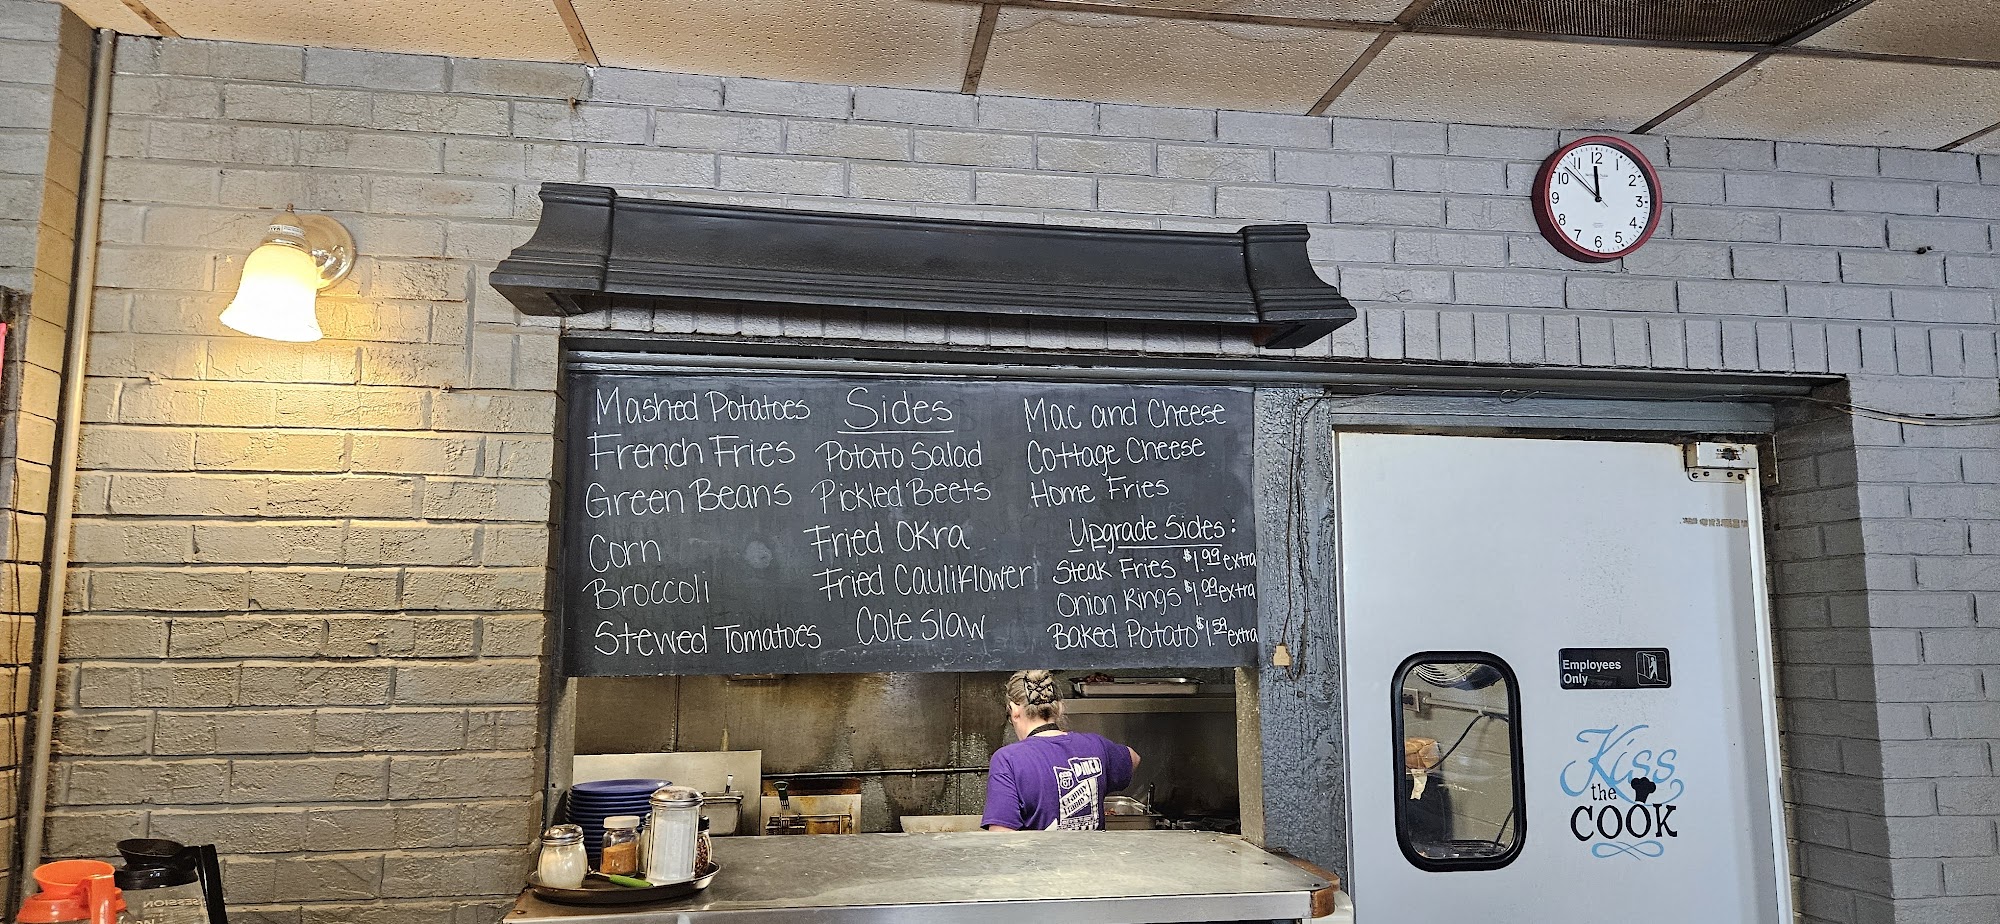 12
1
2
3
4
5
6
7
8
9
10
11
Mashed Potatoes
French Fries
Green Beans
Corn
Broccoli
Stewed Tomatoes
Sides
Potato Salad
Pickled Beets
Fried Okra
Fried Cauliflower
Cole Slaw
Mac and Cheese
Cottage Cheese
Home Fries
Upgrade Sides:
Steak Fries $1.99 extra
Onion Rings $1.99 extra
Baked Potato $1.59 extra
Employees
Only
Kiss
the
COOK
DINER
SESSION